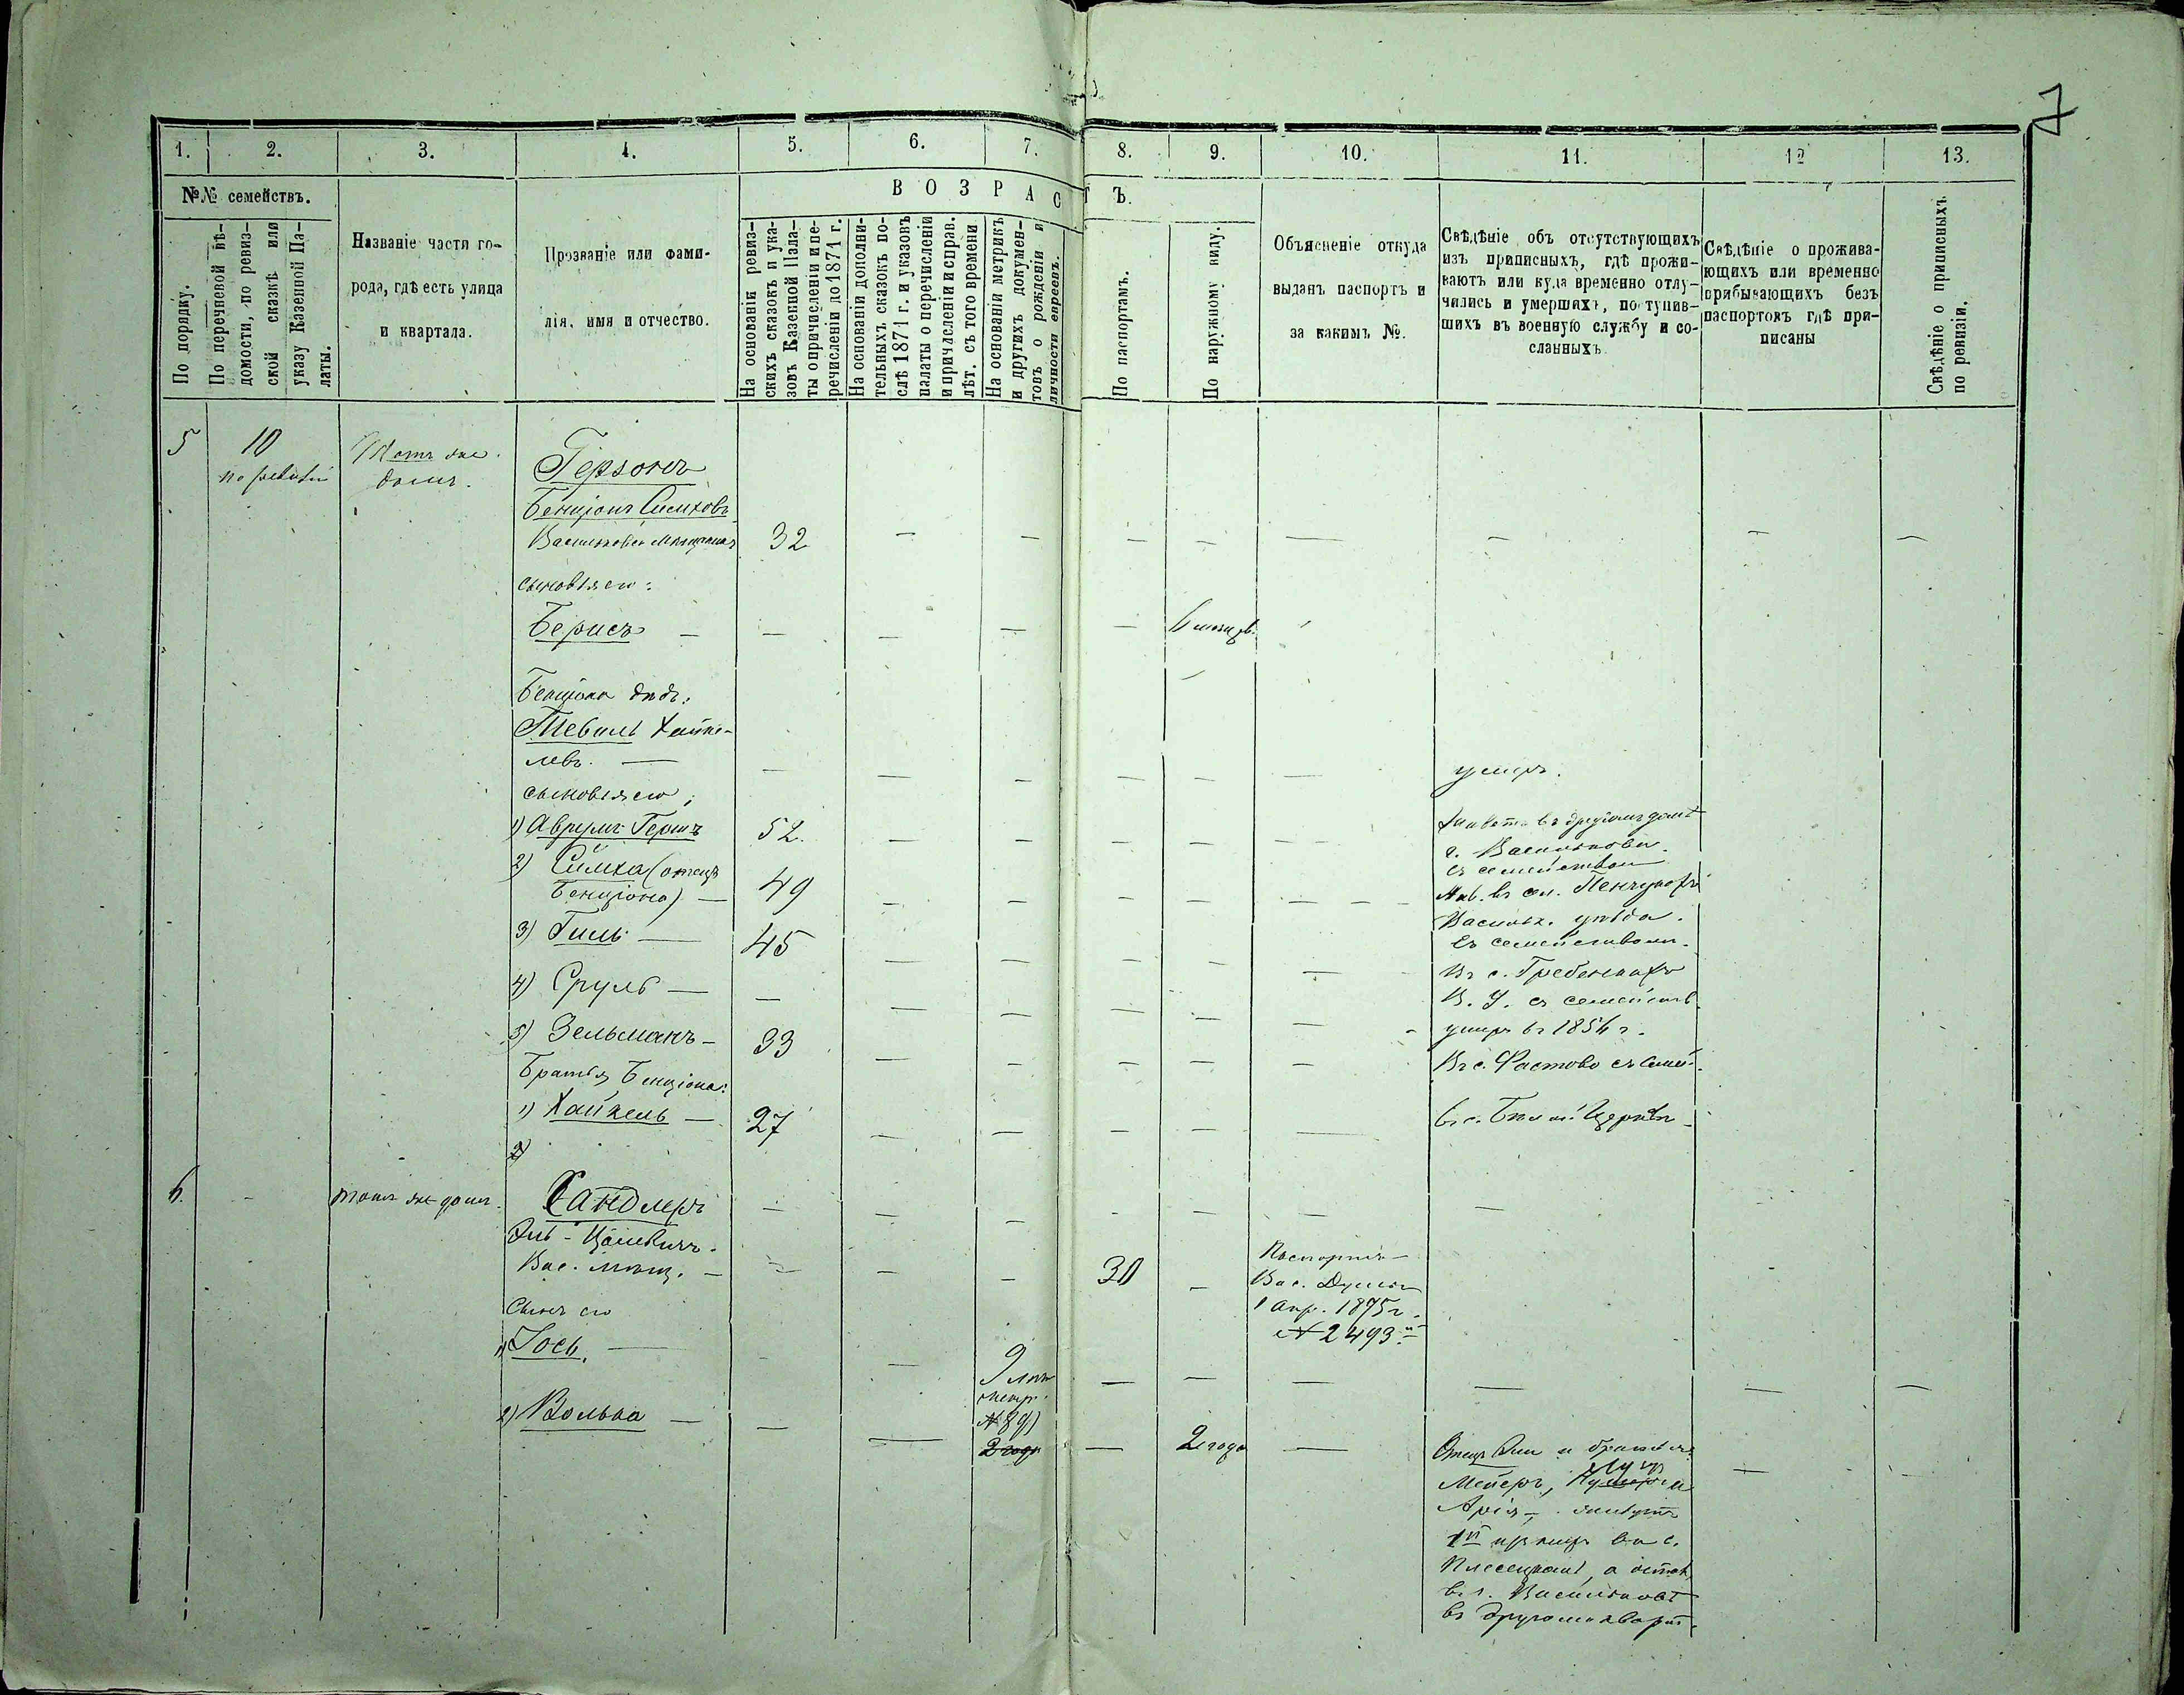 7
1. 2. 3. 4. 5. 6. 7. 8. 9. 10. 11. 12 13.
№№ семействъ.
По порядку.
По перечневой вѣ-
домости, по ревиз-
ской сказкѣ или
указу Казенной Па-
латы.
Названіе части го-
рода, гдѣ есть улица
и квартала.
Прозваніе или фами-
лія, имя и отчество.
ВОЗРАСТЪ.
На основаніи ревиз-
скихъ сказокъ и ука-
зовъ Казенной Пала-
ты о причисленіи и пе-
речисленіи до 1871 г.
На основаніи дополни-
тельныхъ сказокъ по-
слѣ 1871 г. и указовъ
палаты о перечисленіи
и причисленіи и справ.
лѣт. съ того времени
На основаніи метрикъ
и другихъ докумен-
товъ о рожденіи и
личности евреевъ.
По паспортамъ.
По наружному виду.
Объясненіе откуда
выданъ паспортъ и
за какимъ №.
Свѣдѣніе объ отсутствующихъ
изъ приписныхъ, гдѣ прожи-
ваютъ или куда временно отлу-
чились и умершихъ, поступив-
шихъ въ военную службу и со-
сланныхъ
Свѣдѣніе о прожива-
ющихъ или временно
прибывающихъ безъ
паспортовъ гдѣ при-
писаны
Свѣдѣніе о приписныхъ
по ревизіи.
5
10
по ревизіи
Тотъ же
домъ.
Герзонъ
Бенціонъ Симховъ
Васильков. мѣщанинъ 32
сыновья его:
Берисъ —
Бенціона дядь:
Тевель Хайке-
левъ. — умеръ.
сыновья его;
1) Аврумъ Гершъ 52
живетъ въ другомъ домѣ
г. Василькова
съ семействомъ
2) Симха (отецъ
Бенціона) — 49
Жив. въ сел.
Васильк. уѣзда.
съ семействомъ.
3) Гиль — 45
Въ с. Гребенкахъ
В. У. съ семейств.
4) Сруль —
умеръ въ 1854 г.
5) Зельманъ — 33
Въ с. Фастово съ семей.
Братья Бенціона:
1) Хайкель — 27
въ с. Бѣлой Церкви
2)
6.
тотъ же домъ.
Сандлеръ
Вас. мѣщ. — 30
Паспортъ
Вас. Думы
1 апр. 1875 г.
№ 2493.
Сынъ его
1) Іось. —
9 лѣтъ
метр.
2) Волька —
2 года
2 года
Отецъ и братья:
Мейеръ,
Арія — живутъ
въ с.
Плесецкомъ, а остал.
въ г. Васильковѣ
въ другомъ кварт.